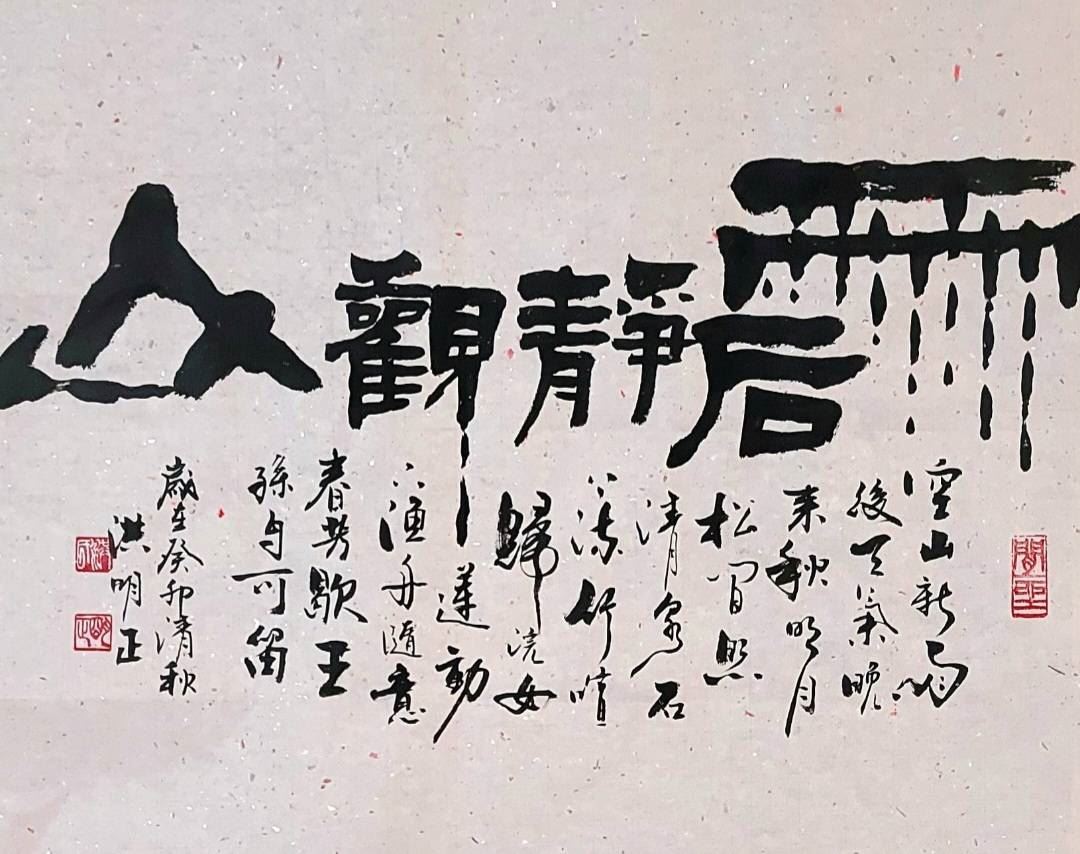 雨后靜觀山
空山新雨
後天氣晚
来秋明月
松间照
清泉石
上流竹喧
歸浣女
蓮動
下漁舟隨意
春芳歇王
孫自可留
歲在癸卯清秋
洪明正